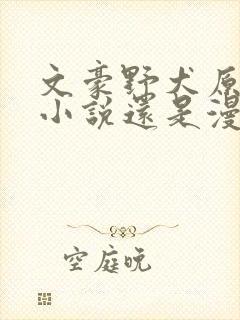 文豪野犬原
小說還是漫
空庭晚